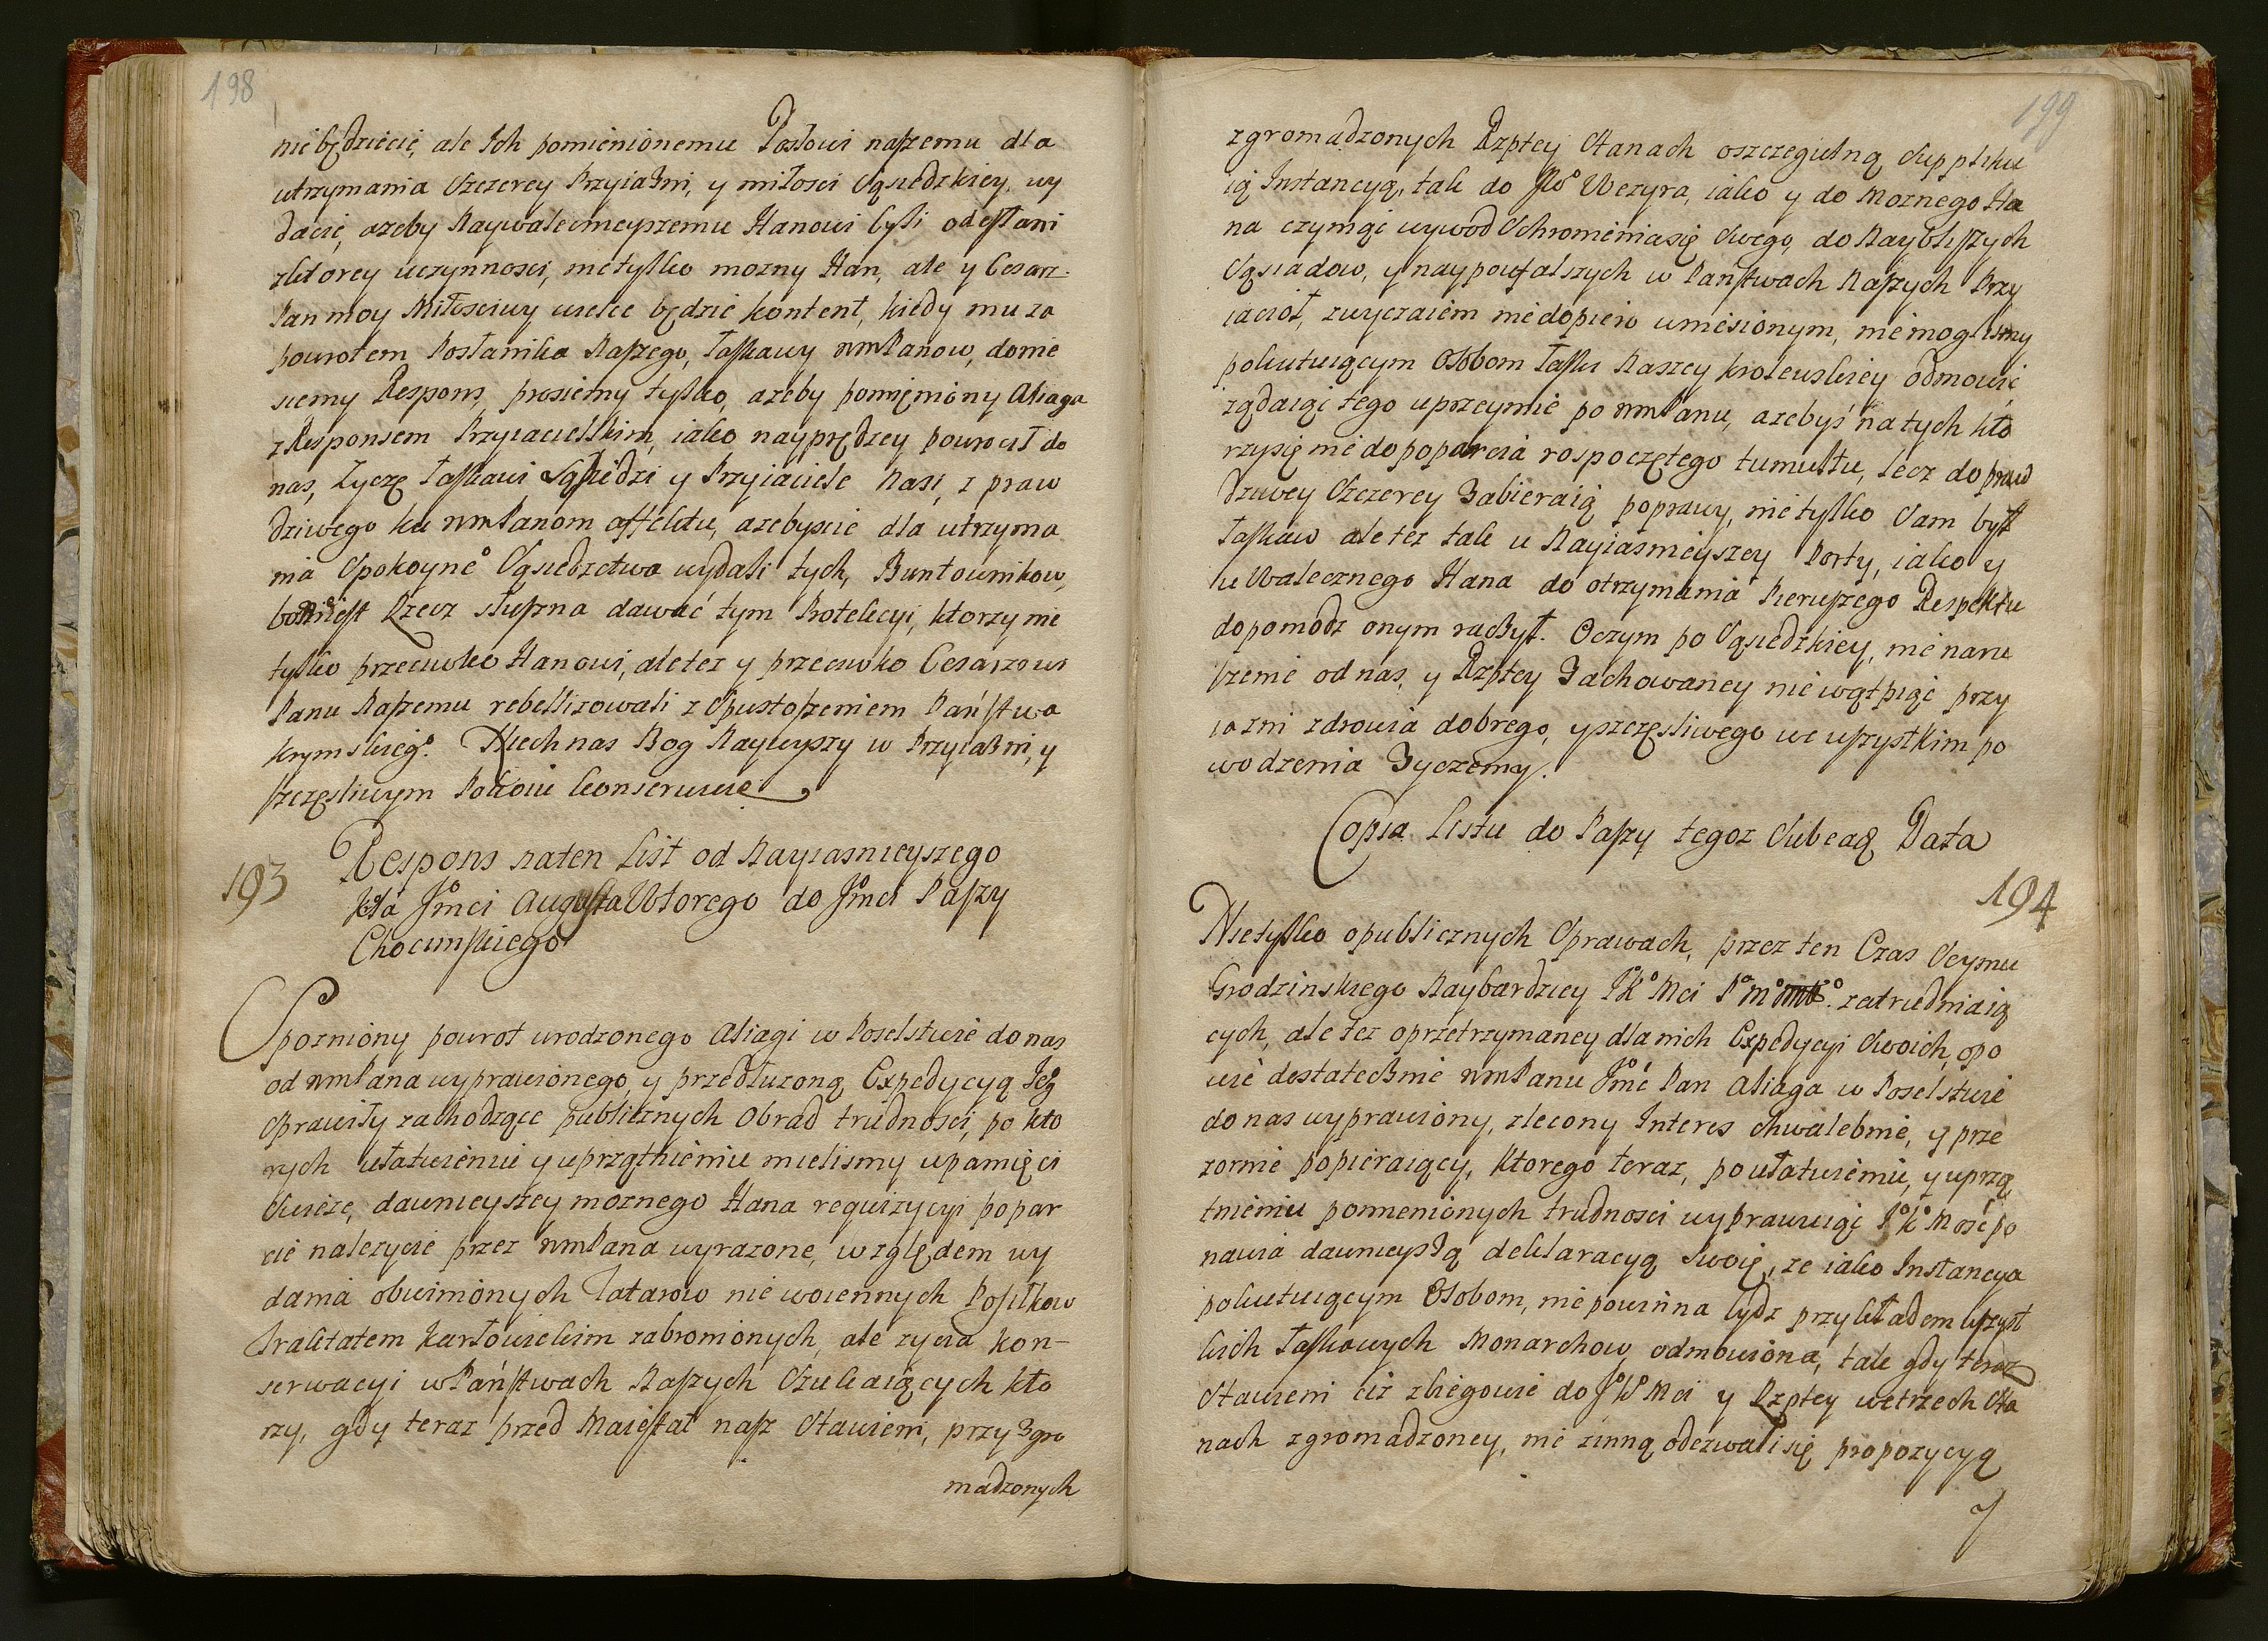 198
nie będziecie, ale Ich pomienionemu Posłowi naszemu dla
utrzymania Szczerey Przyiaźni, y miłosci Sąsiedzkiey, wy
dacie, azeby Naywalecznieyszemu Hanowi byli odesłani
zktorey uczynnosci, nietylko mozny Han, ale y Cesarz
Pan moy Miłosciwy wielce będzie kontent, kiedy mu za
powrotem Posłanika Naszego, łaskawy WmPanow, donie
siemy Respons, prosiemy tylko, azeby pomięniony Aliaga
z Responsem Przyiacielskim, iako nayprędzey powrocił do
nas, Zyczę łaskawi Sąsiedzi y Przyiaciele Nasi, z praw
dziwego ku WmPanom affektu, azebyscie dla utrzyma
nia Spokoyne° Sąsiedztwa wydali tych, Buntownikow,
bo niest Rzecz słuszna dawać tym Protekcyi, ktorzy nie
tylko przeciwko Hanowi, ale tez y przeciwko Cesarzowi
Panu Naszemu rebellizowali z Spustoszeniem Państwa
krymskieg°. Niech nas Bog Naywyszy w Przyiaźni, y
szczęsliwym Pokoiu konserwuie
193
Respons na ten List od Nayiasnieyszego
Kła Jmci Augusta Wtorego do Jmci Paszy
Chocimskiego
Spozniony powrot urodzonego Aliagi w Poselstwie do nas
od WmPana wyprawionego, y przedłuzoną Expedycyą Jeg
Sprawiły zachodzące publicznych Obrad trudnosci, po kto
rych ułatwieniu y uprzątnieniu mielismy w pamięci
Swieze, dawnieyszey moznego Hana requizycyi popar
cie nalezycie przez WmPana wyrazone, względem wy
dania obwinionych Tatarow nie woiennych Posiłkow
Traktatem Karłowickim zabronionych, ale zycia kon-
serwacyi w Państwach Naszych Szukaiących kto
rzy, gdy teraz przed Maiestat nasz Stawieni, przy Zgro
madzonych
199
zgromadzonych Rzptey Stanach oszczegulną Suppliku
ią Instancyą, tak do Jw° Wezyra, iako y do Moznego Ha
na czymąc wywod Schronieniasię Swego, do Nayblisszych
Sąsiadow, y naypoufalszych w Państwach Naszych Przy
iacioł, zwyczaiem niedopiero wniesionym, niemoglismy
pokutuiącym Osobom łaski Naszey krolewskiey odmowić
ządaiąc tego uprzeymie po WmPanu, azebyś na tych kto
rzysię nie do poparcia rospoczętego tumultu, lecz do praw
dziwey Szczerey Zabieraią poprawy, nie tylko Sam był
łaskaw ale tez tak u Nayiasnieyszey Porty, iako y
u Walecznego Hana do otrzymania Pierwszego Respektu
dopomodz onym raczył. Oczym po Sąsiedzkiey, nie naru
szenie od nas, y Rzptey Zachowaney nie wątpiąc przy
iazni zdrowia dobrego, y szczęsliwego we wszystkim po
wodzenia Zyczemy.
Copia Listu do Paszy tegoz Subeaq Data
194
Nietylko opublicznych Sprawach, przez ten Czas Seymu
Grodzinskiego Naybardziey J°K° Mci P° m° zatrudniaią
cych, ale tez oprzetrzymaney dla nich Expedycyi Swoich, opo
wie dostatecznie WmPanu Jmć Pan Aliaga w Poselstwie
do nas wyprawiony, zlecony Interes chwalebnie, y prze
zornie popieraiący, Ktorego teraz, po ułatwieniu, y uprzą
tnieniu pomienionych trudnosci wyprawuiąc J°K° Mość po
nawia dawnieyszą deklaracyą Swoię, ze iako Instancya
pokutuiącym Osobom, nie powinna bydz przykładem wszyst
kich łaskawych Monarchow, odmowiona, tak gdy teraz
Stawieni ciz zbiegowie do J°K° Mci y Rzptey wetrzech Sta
nach zgromadzoney, nie zinną odezwali się propozycyą
y